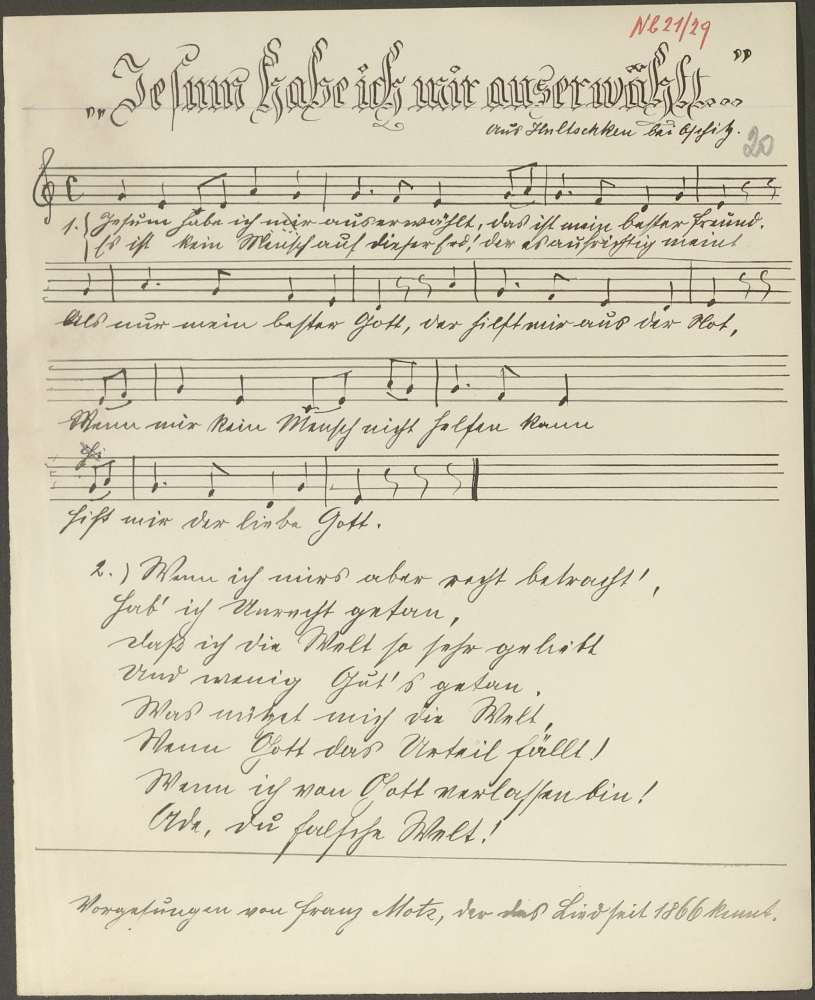 Nb 21/29
„Jesum habe ich mir auserwählt..."
Aus Hultschken bei Oschitz.
20
1. Jesum habe ich mir auserwählt, das ist mein bester Freund.
Es ist kein Mensch auf dieser Erd! der es aufrichtig meint
Als nur mein bester Gott, der hilft mir aus der Not,
Wenn mir kein Mensch nicht helfen kann
hilft mir der liebe Gott.
2.) Wenn ich mirs aber recht betracht',
Hab' ich Unrecht getan,
Daß ich die Welt so sehr geliebt
Und wenig Gut's getan.
Was nützet mich die Welt,
Wenn Gott das Urteil fällt!
Wenn ich von Gott verlassen bin!
Ade, du falsche Welt!
Vorgesungen von Franz Motz, der das Lied seit 1866 kennt.